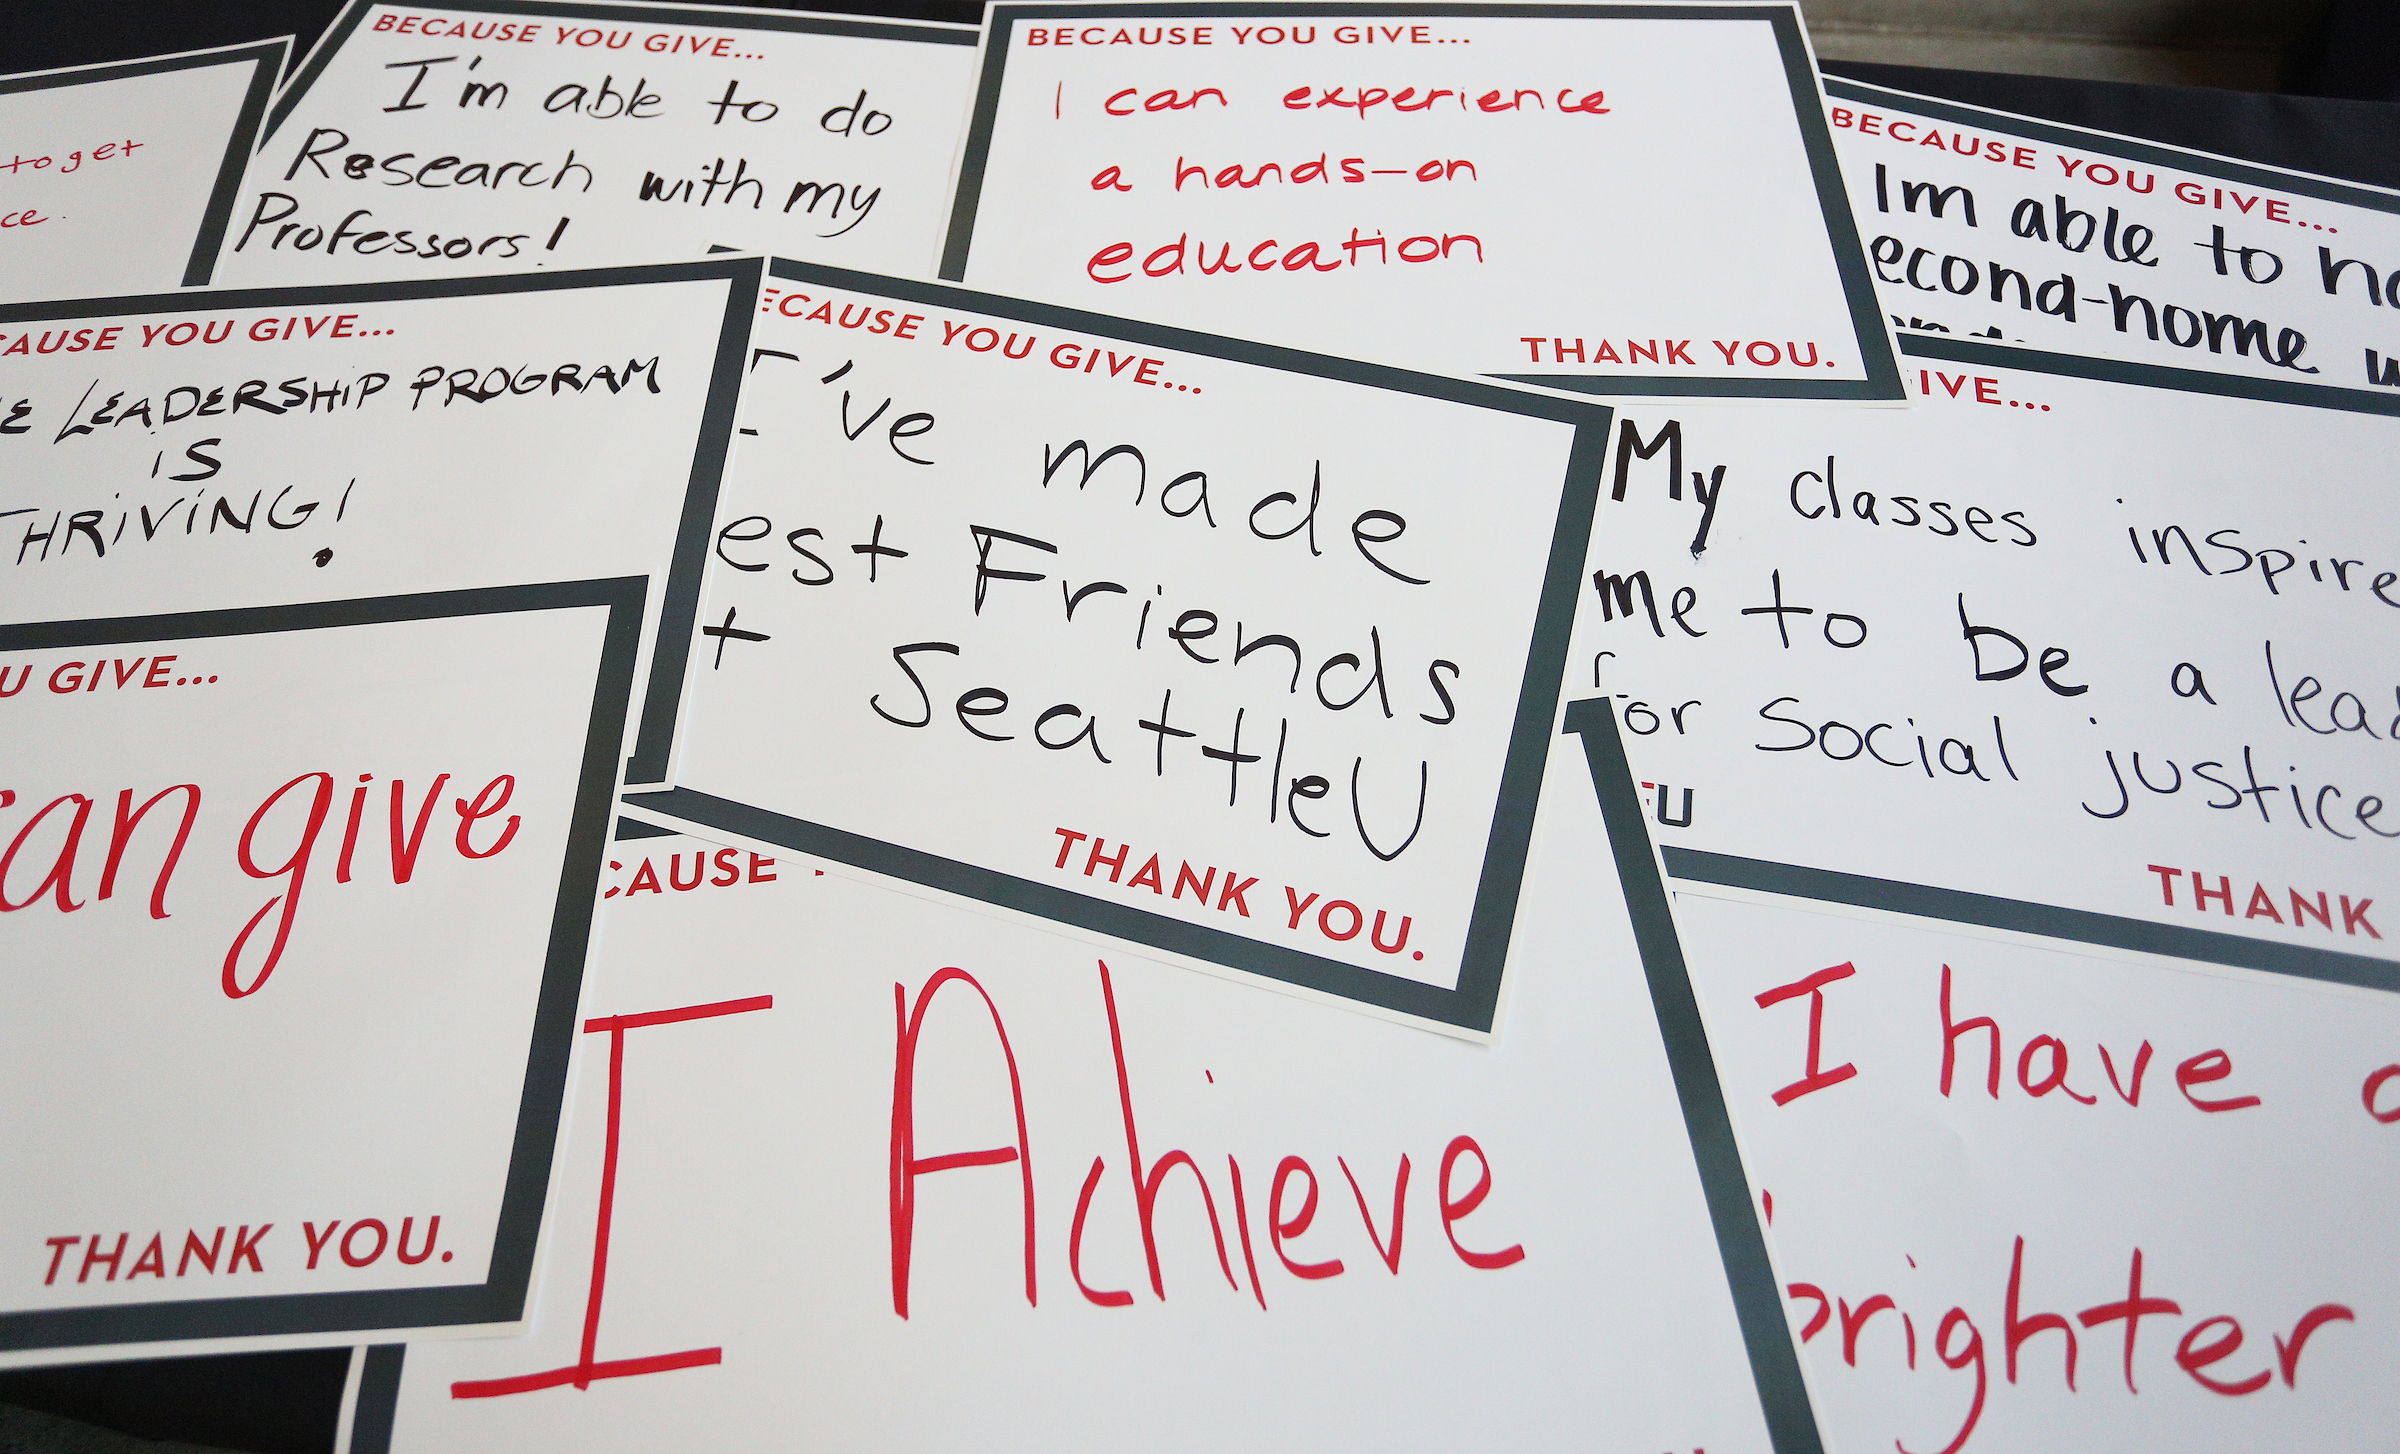 to get
BECAUSE YOU GIVE...
I'm able to do
Research with my
Professors!
BECAUSE YOU GIVE...
I can experience
a hands-on
education
THANK YOU.
BECAUSE YOU GIVE...
Im able to
econd-home
CAUSE YOU GIVE...
E LEADERSHIP PROGRAM
IS
THRIVING!
ECAUSE YOU GIVE...
I've made
est Friends
t SeattleU
THANK YOU.
IVE...
My classes inspire
me to be a lead
for Social justice
EU
THANK
U GIVE...
can give
THANK YOU.
CAUSE
I Achieve
I have a
brighter